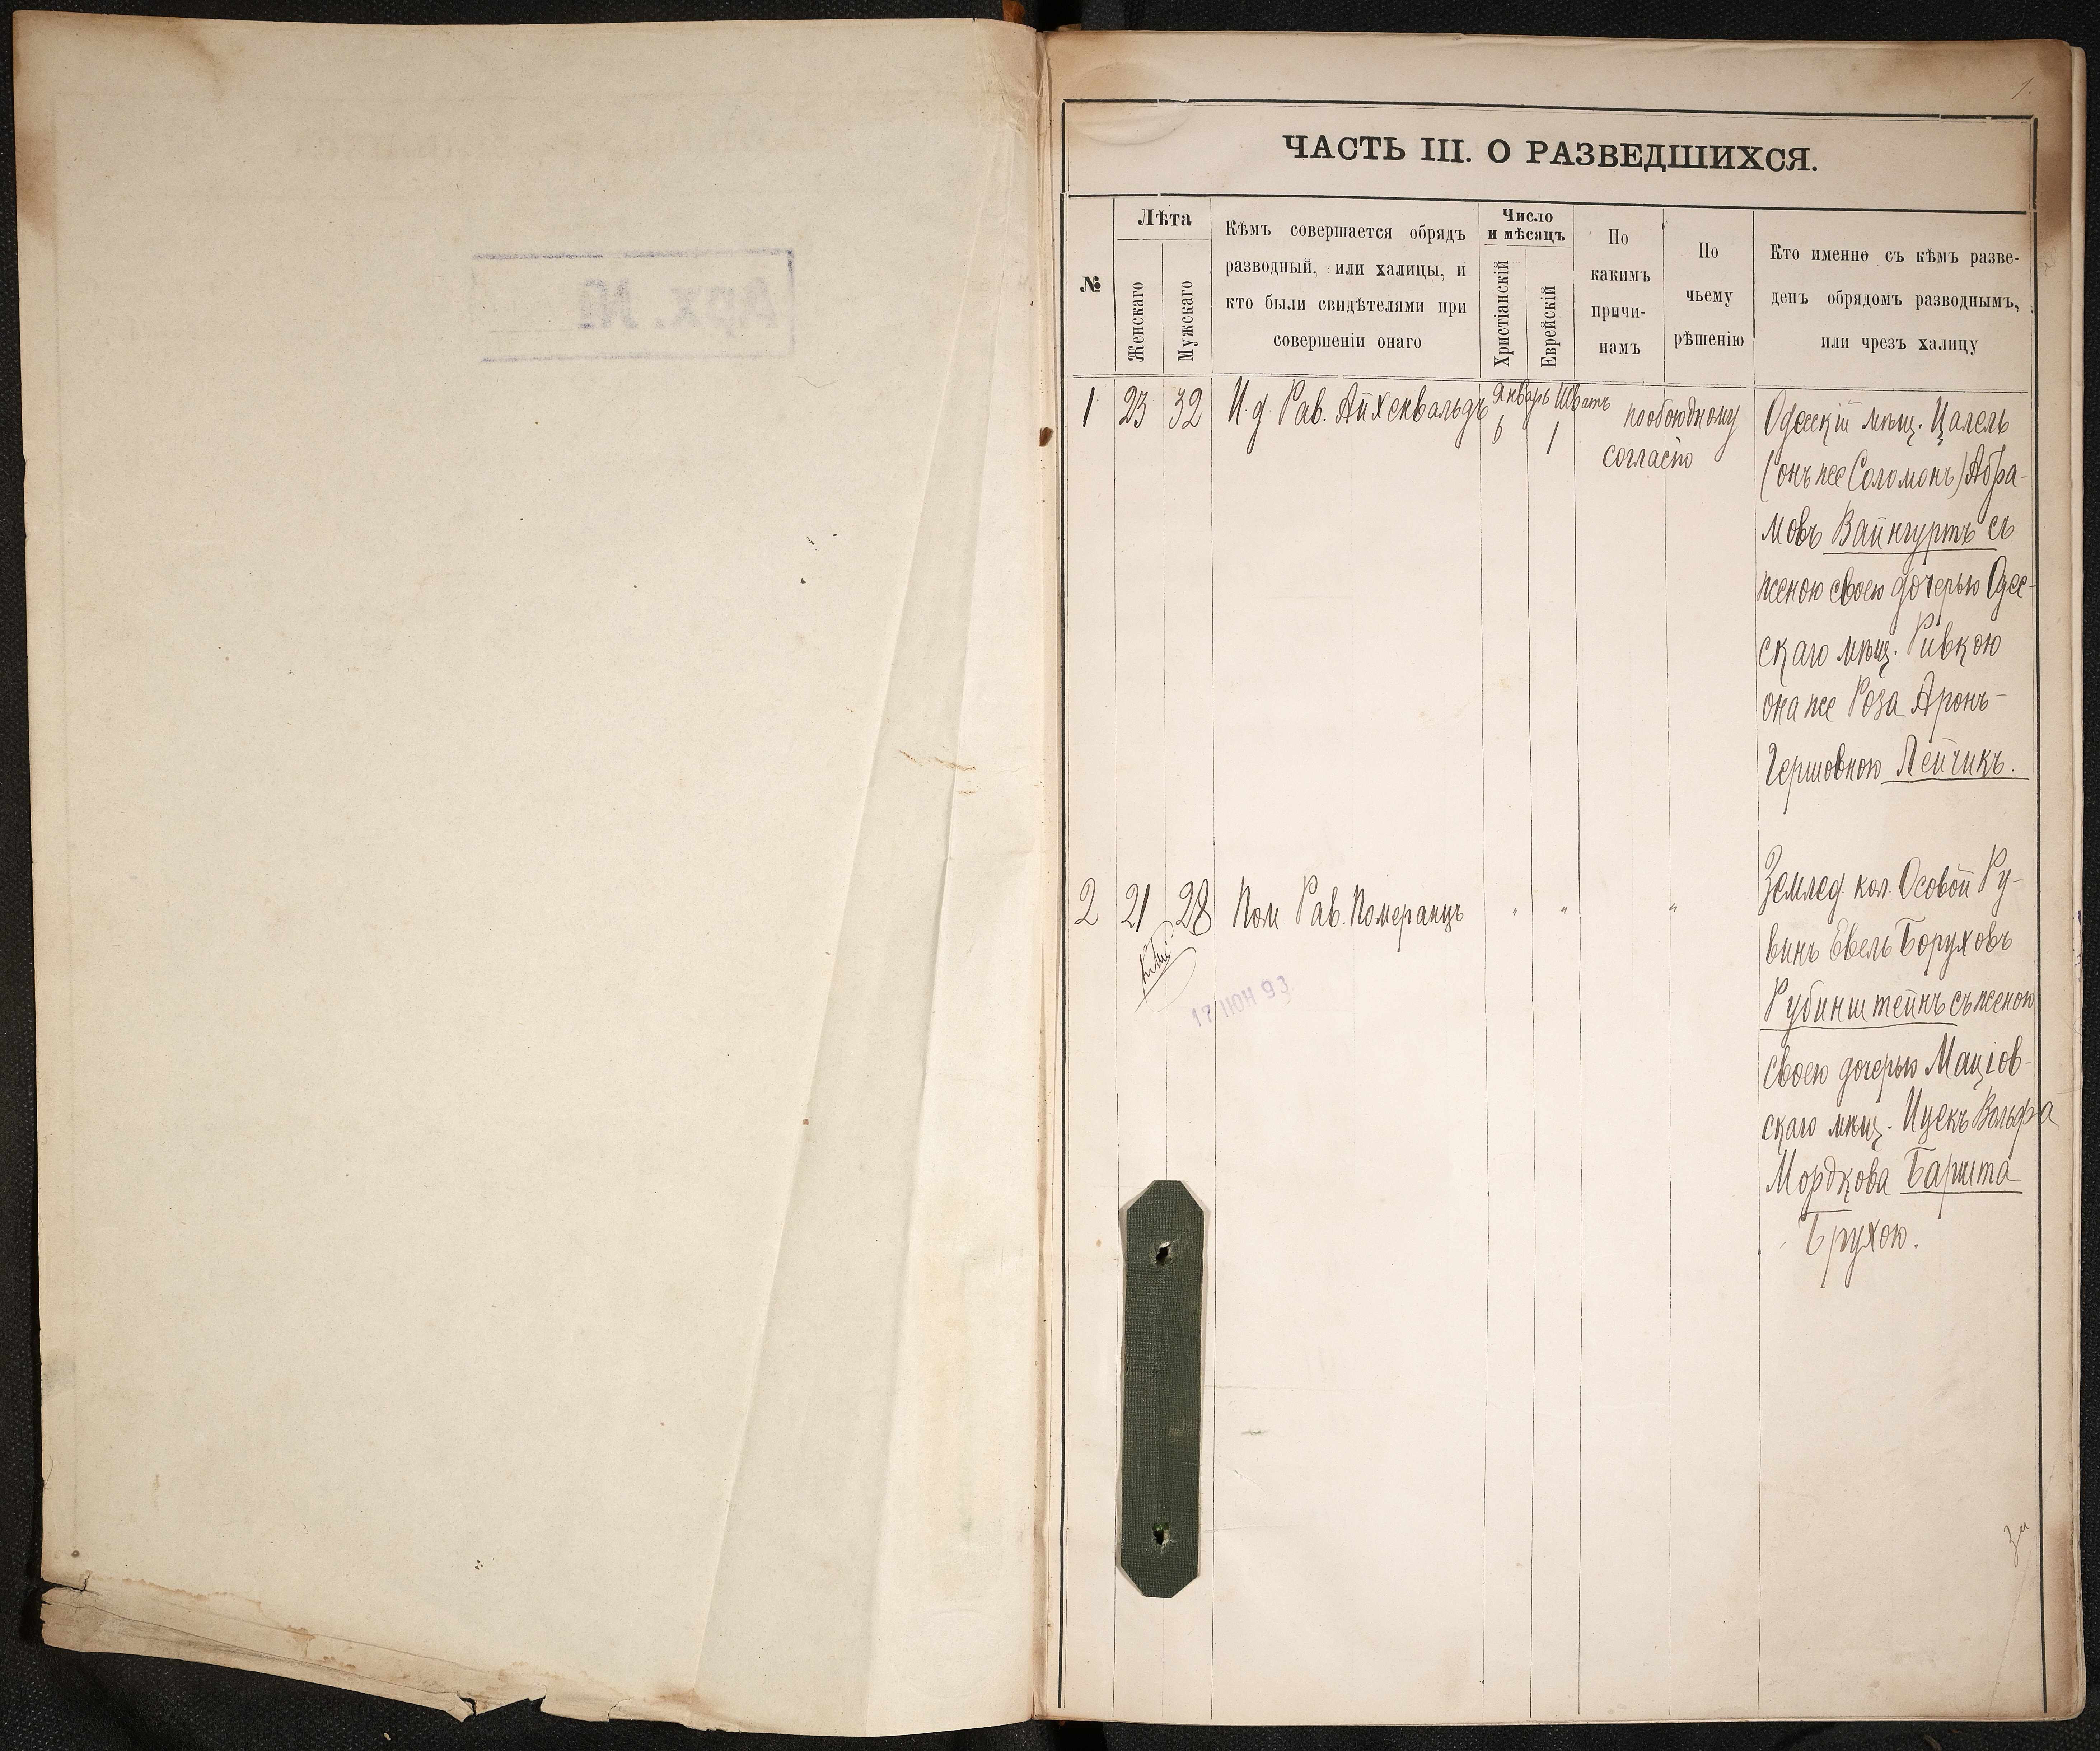 Арх. №
1.
ЧАСТЬ III. О РАЗВЕДШИХСЯ.
№
Лѣта
Женскаго
Мужскаго
Кѣмъ совершается обрядъ
разводный, или халицы, и
кто были свидѣтелями при
совершеніи онаго
Число
и мѣсяцъ
Христіанскій
Еврейскій
По
какимъ
причи-
намъ
По
чьему
рѣшенію
Кто именно съ кѣмъ разве-
денъ обрядомъ разводнымъ,
или чрезъ халицу
1 23 32 И. д. Рав. Айхенвальдъ
Январь Шватъ
6 1
по обоюдному
согласію
Одесскій мѣщ. Цалель
(онъ же Соломонъ) Абра-
мовъ Вайнгуртъ съ
женою своею дочерью Одес-
скаго мѣщ. Ривкою
она же Роза Аронъ-
Гершовною Лейчикъ.
2 21 28 Пом. Рав. Померанцъ " " "
17 ІЮН 93
Землед. кол. Особой Ру-
винъ Евель Боруховъ
Рубинштейнъ съ женою
своею дочерью Маціов-
скаго мѣщ. Ицекъ Вольфа
Мордкова Баршта
Брухою.